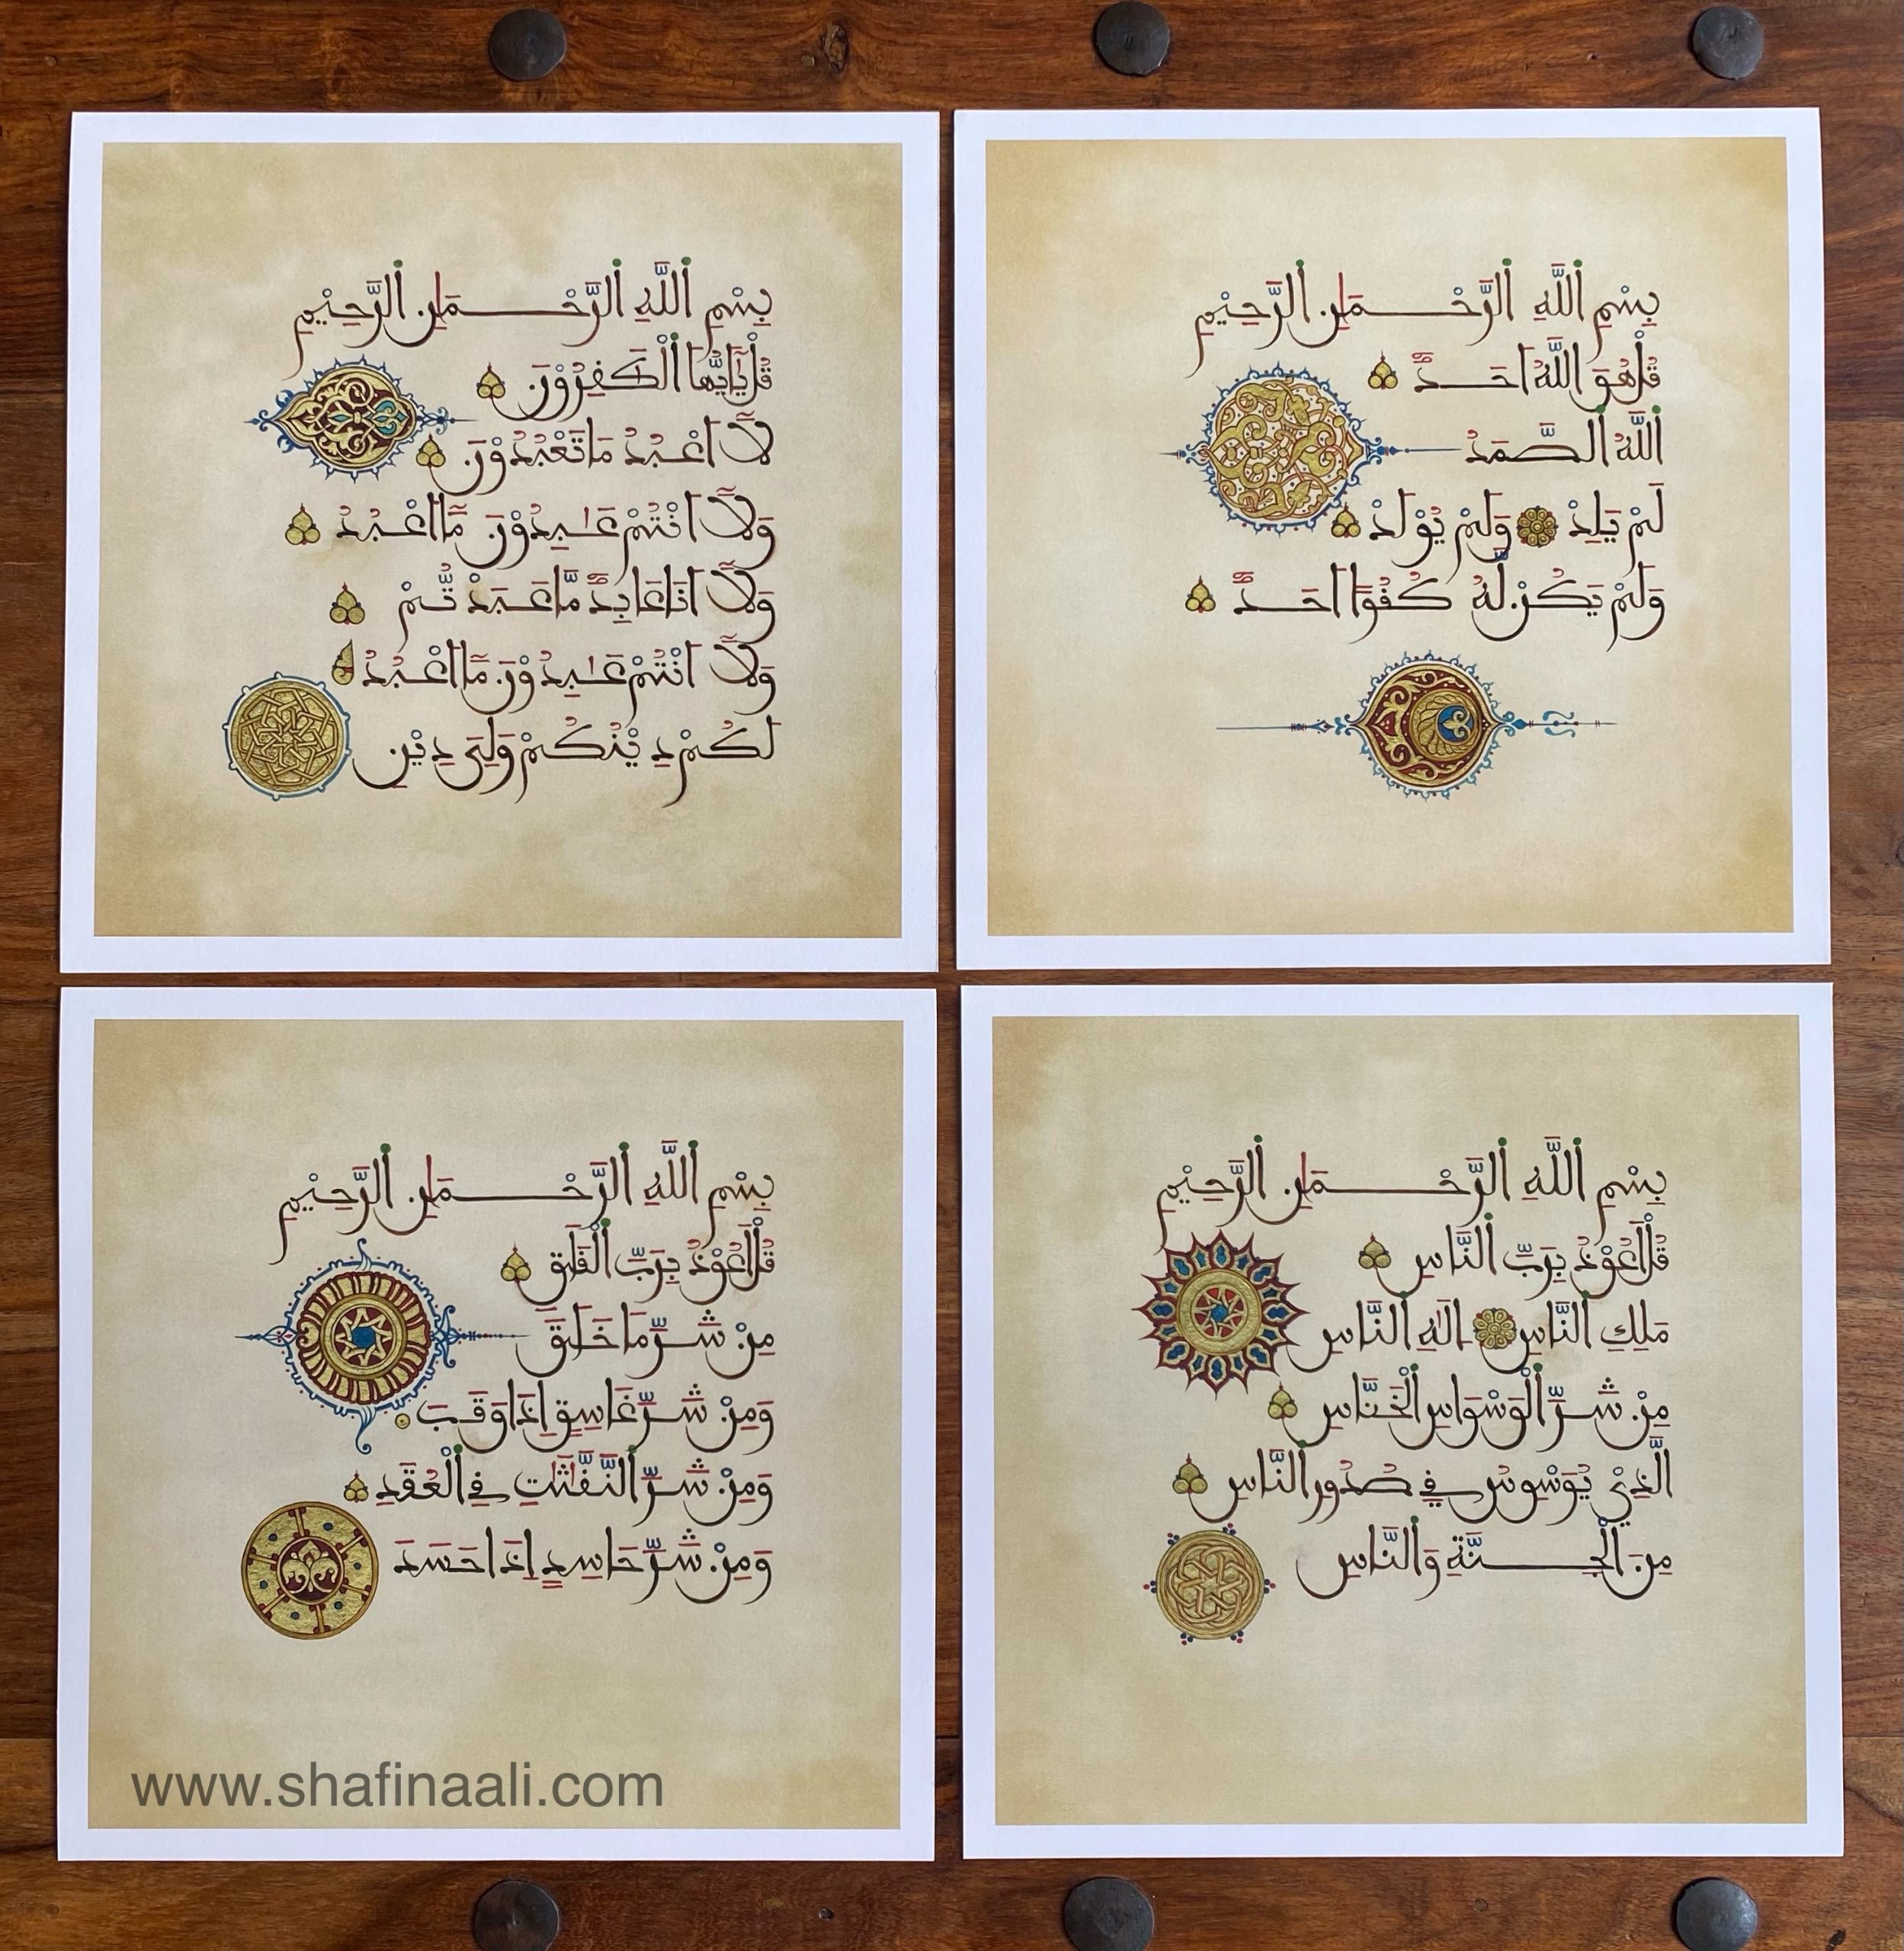 بِسْمِ اللَّهِ الرَّحْمَٰنِ الرَّحِيْمِ
قُلْ يَٰٓاَيُّهَا الْكَٰفِرُوْنَ
لَآ اَعْبُدُ مَا تَعْبُدُوْنَ
وَلَآ اَنْتُمْ عَٰبِدُوْنَ مَآ اَعْبُدُ
وَلَآ اَنَا عَابِدٌ مَّا عَبَدْتُّمْ
وَلَآ اَنْتُمْ عَٰبِدُوْنَ مَآ اَعْبُدُ
لَكُمْ دِيْنُكُمْ وَلِيَ دِيْنِ
بِسْمِ اللَّهِ الرَّحْمَٰنِ الرَّحِيْمِ
قُلْ هُوَ اللَّهُ اَحَدٌ
اَللَّهُ الصَّمَدُ
لَمْ يَلِدْ وَلَمْ يُوْلَدْ
وَلَمْ يَكُنْ لَّهُ كُفُوًا اَحَدٌ
بِسْمِ اللَّهِ الرَّحْمَٰنِ الرَّحِيْمِ
قُلْ اَعُوْذُ بِرَبِّ الْفَلَقِ
مِنْ شَرِّ مَا خَلَقَ
وَمِنْ شَرِّ غَاسِقٍ اِذَا وَقَبَ
وَمِنْ شَرِّ النَّفَّٰثَٰتِ فِي الْعُقَدِ
وَمِنْ شَرِّ حَاسِدٍ اِذَا حَسَدَ
www.shafinaali.com
بِسْمِ اللَّهِ الرَّحْمَٰنِ الرَّحِيْمِ
قُلْ اَعُوْذُ بِرَبِّ النَّاسِ
مَلِكِ النَّاسِ اِلَٰهِ النَّاسِ
مِنْ شَرِّ الْوَسْوَاسِ الْخَنَّاسِ
الَّذِيْ يُوَسْوِسُ فِيْ صُدُوْرِ النَّاسِ
مِنَ الْجِنَّةِ وَالنَّاسِ